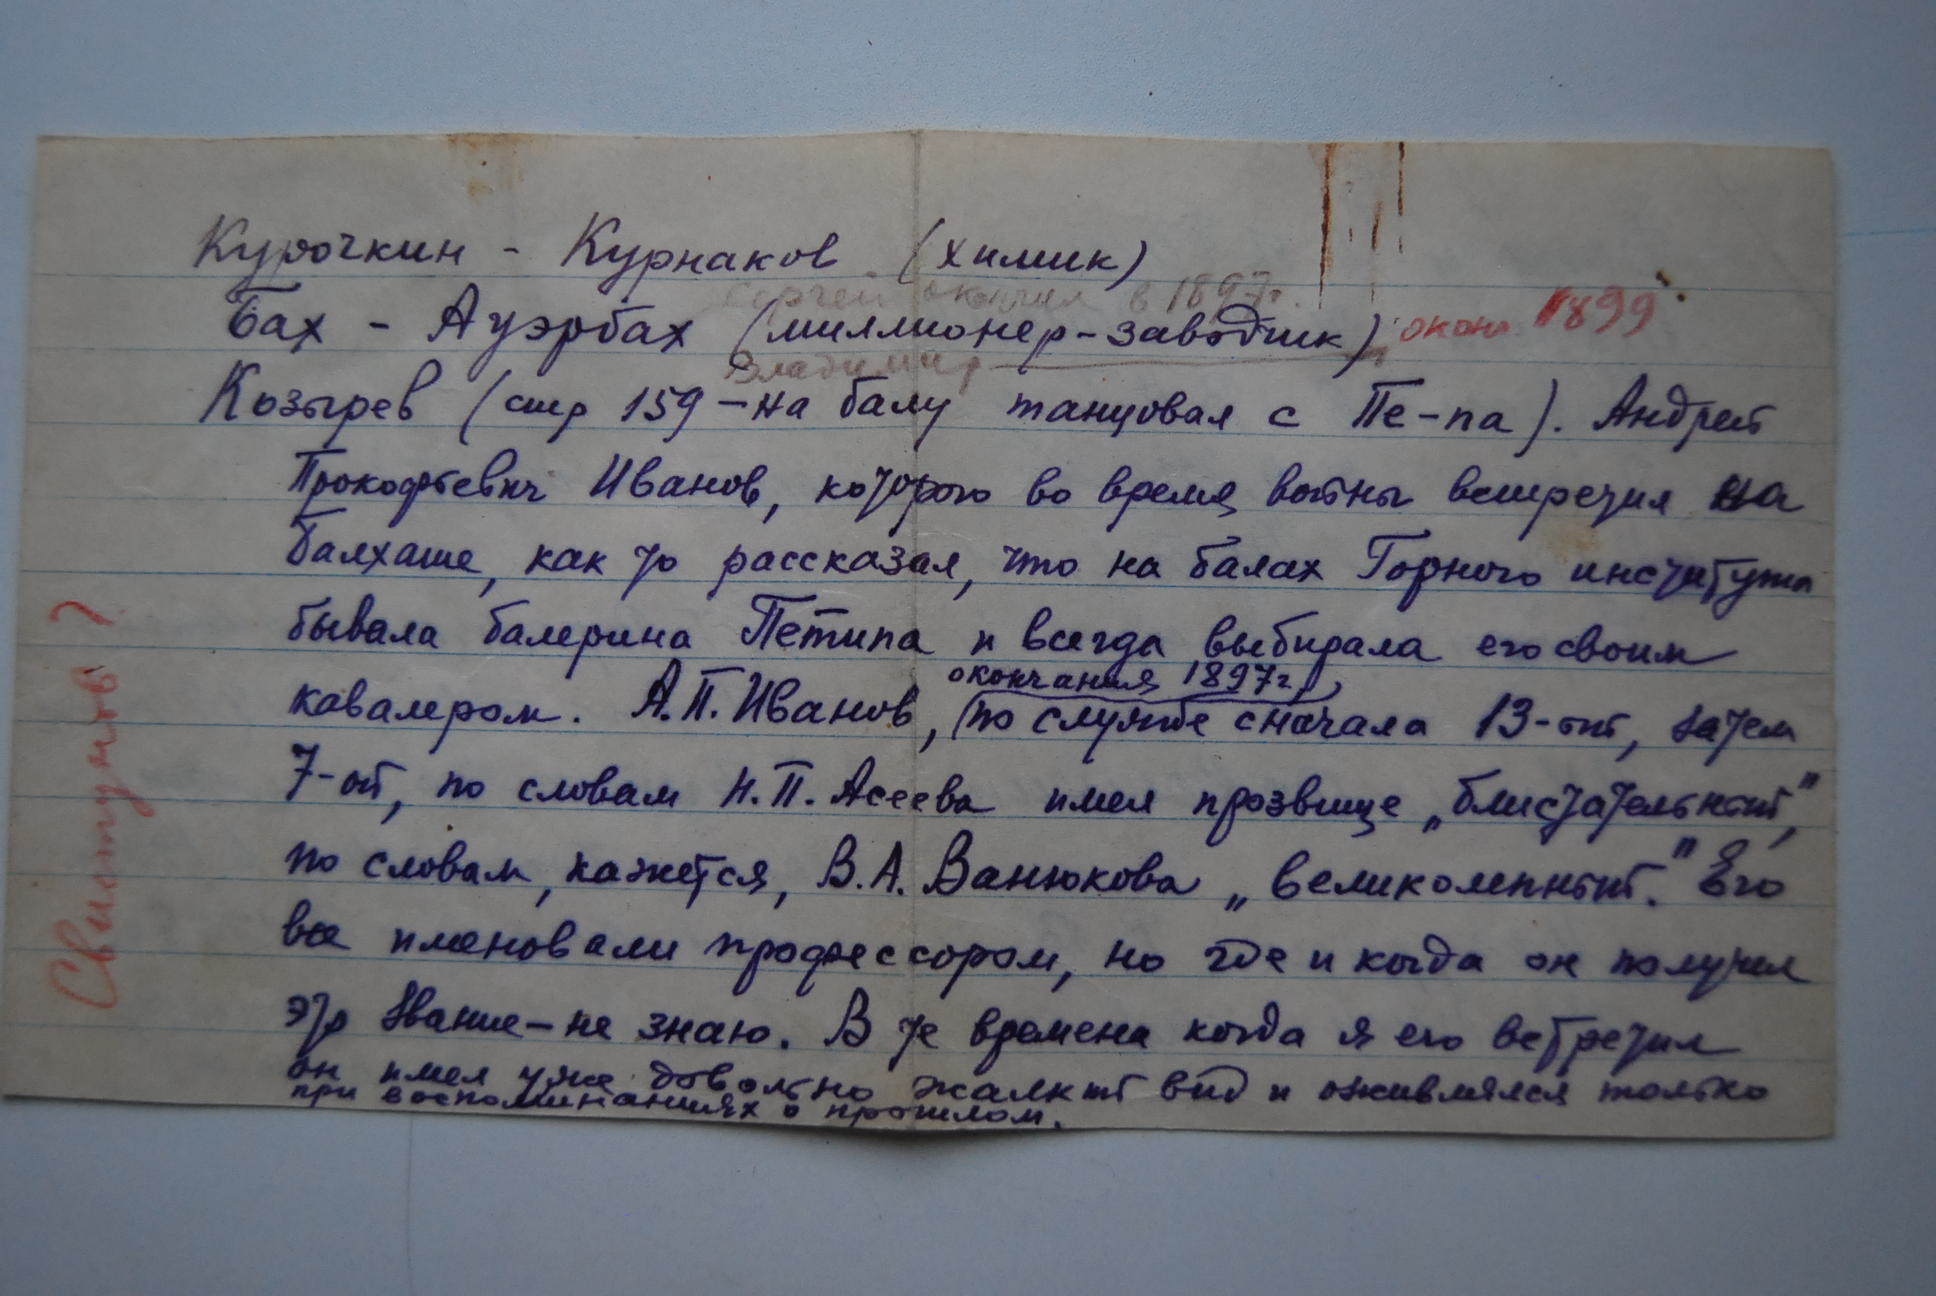 Курочкин - Курнаков (химик)
Сергей окончил в 1897г.
Бах - Ауэрбах (миллионер-заводчик) оконч. 1899
Владимир
Козырев (стр 159 - на балу танцовал с Пе-па). Андрей
Прокофьевич Иванов, которого во время войны встретил на
Балхаше, как то рассказал, что на балах Горного института
бывала балерина Петипа и всегда выбирала его своим
окончания 1897г.
кавалером. А.П. Иванов, (по службе сначала 13-ый, затем
7-ой, по словам Н.П. Асеева имел прозвище „блистательный",
по словам, кажется, В.А. Ванюкова „великолепный." Его
все именовали профессором, но где и когда он получил
это звание - не знаю. В те времена когда я его встретил
он имел уже довольно жалкий вид и оживлялся только
при воспоминаниях о прошлом.
Свистунов ?